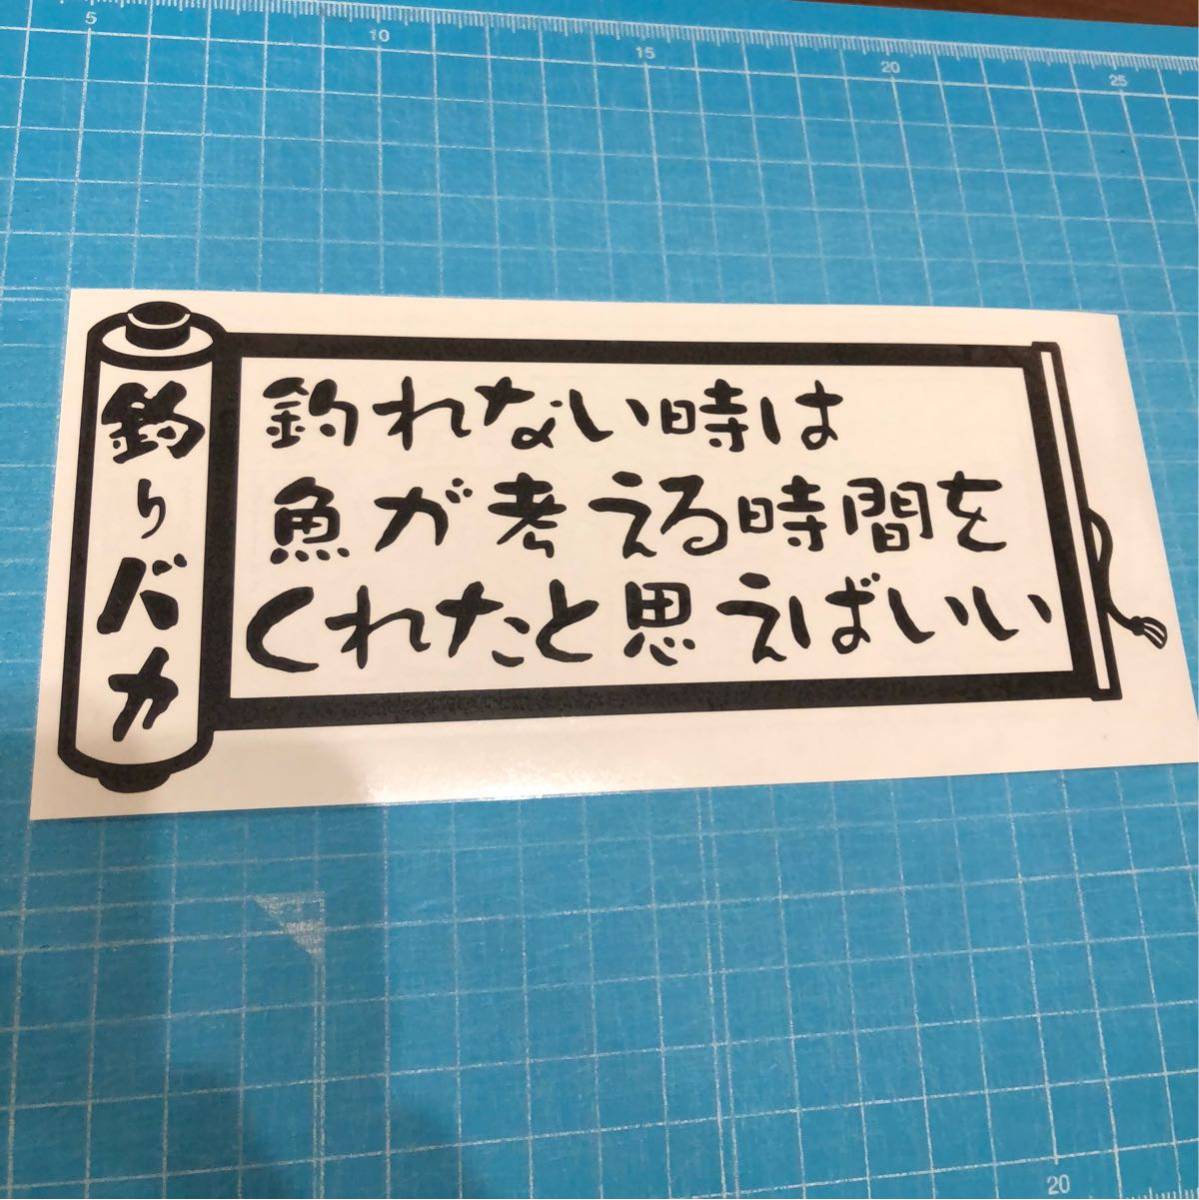 5 10 15 20 25
釣りバカ
釣れない時は
魚が考える時間を
くれたと思えばいい
20